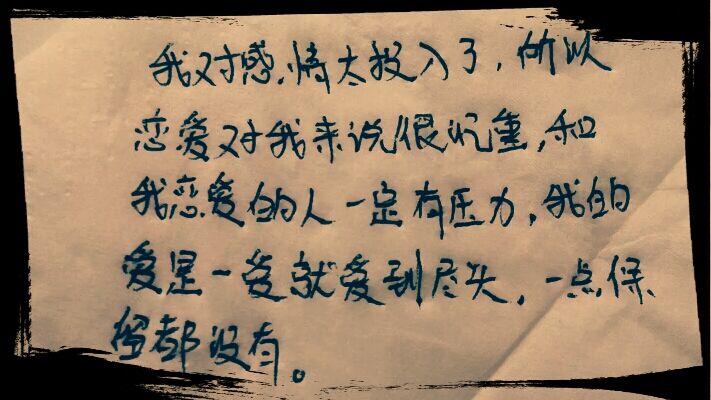 我对感情太投入了，所以
恋爱对我来说很沉重，和
我恋爱的人一定有压力，我的
爱是一爱就爱到尽头，一点保
留都没有。